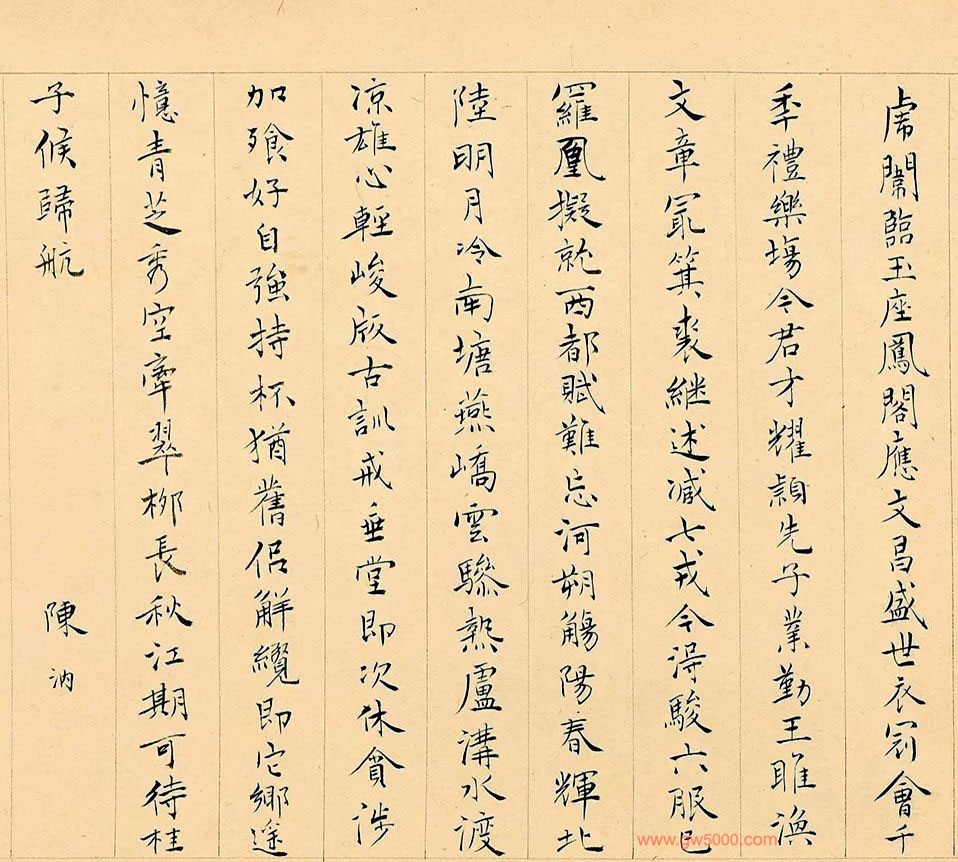 虎闈臨玉座鳳閣應文昌盛世衣冠會千
季禮樂塲令君才耀穎先子業勤王雎渙
文章冣箕裘繼述臧七戎今得駿六服已
羅凰擬就西都賦難忘河朔觴陽春輝北
陸明月冷南塘燕嶠雲驂熱盧溝水渡
凉雄心輕峻阪古訓戒垂堂即次休貪涉
加飱好自強持杯猶舊侶解纜即它鄉途
憶青芝秀空牽翠柳長秋江期可待桂
子候歸航
陳汭
www.gw5000.com